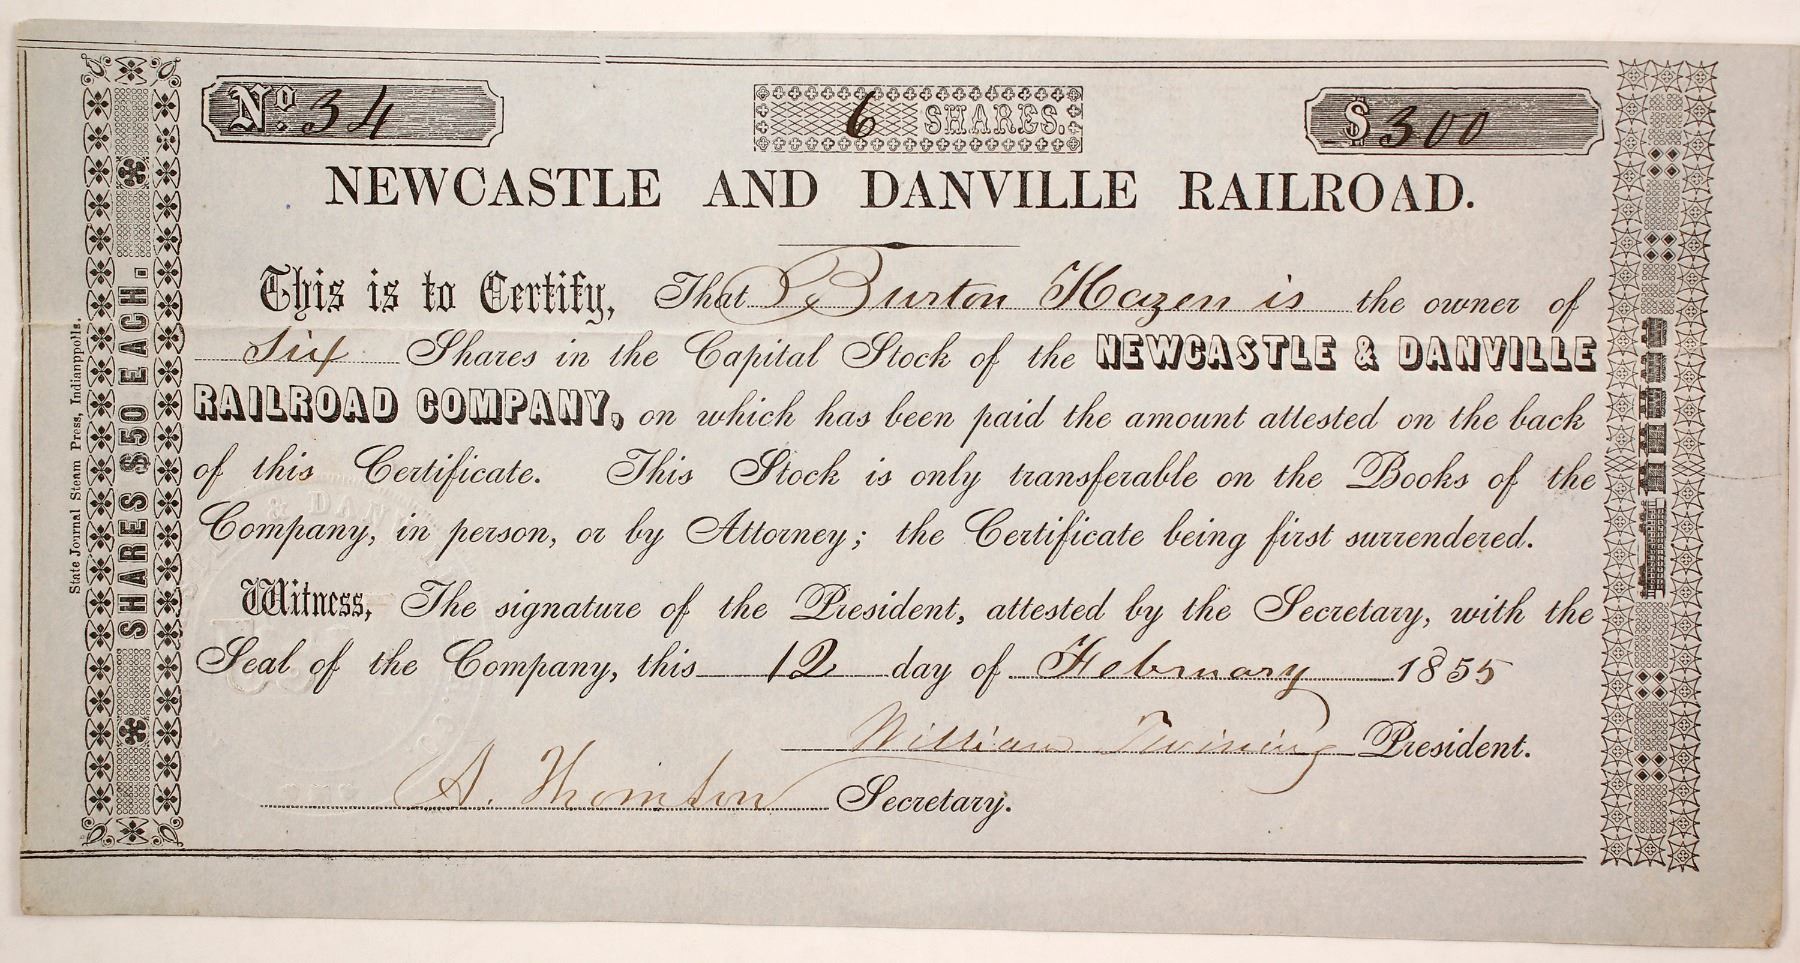 No. 34
6 SHARES.
$ 300
NEWCASTLE AND DANVILLE RAILROAD.
This is to Certify, That Burton Hazen is the owner of
Six Shares in the Capital Stock of the NEWCASTLE & DANVILLE
RAILROAD COMPANY, on which has been paid the amount attested on the back
of this Certificate. This Stock is only transferable on the Books of the
Company, in person, or by Attorney; the Certificate being first surrendered.
Witness, The signature of the President, attested by the Secretary, with the
Seal of the Company, this 12 day of February 1855
William Twining President.
A. Thornton Secretary.
SHARES $50 EACH.
State Journal Steam Press, Indianppolls.